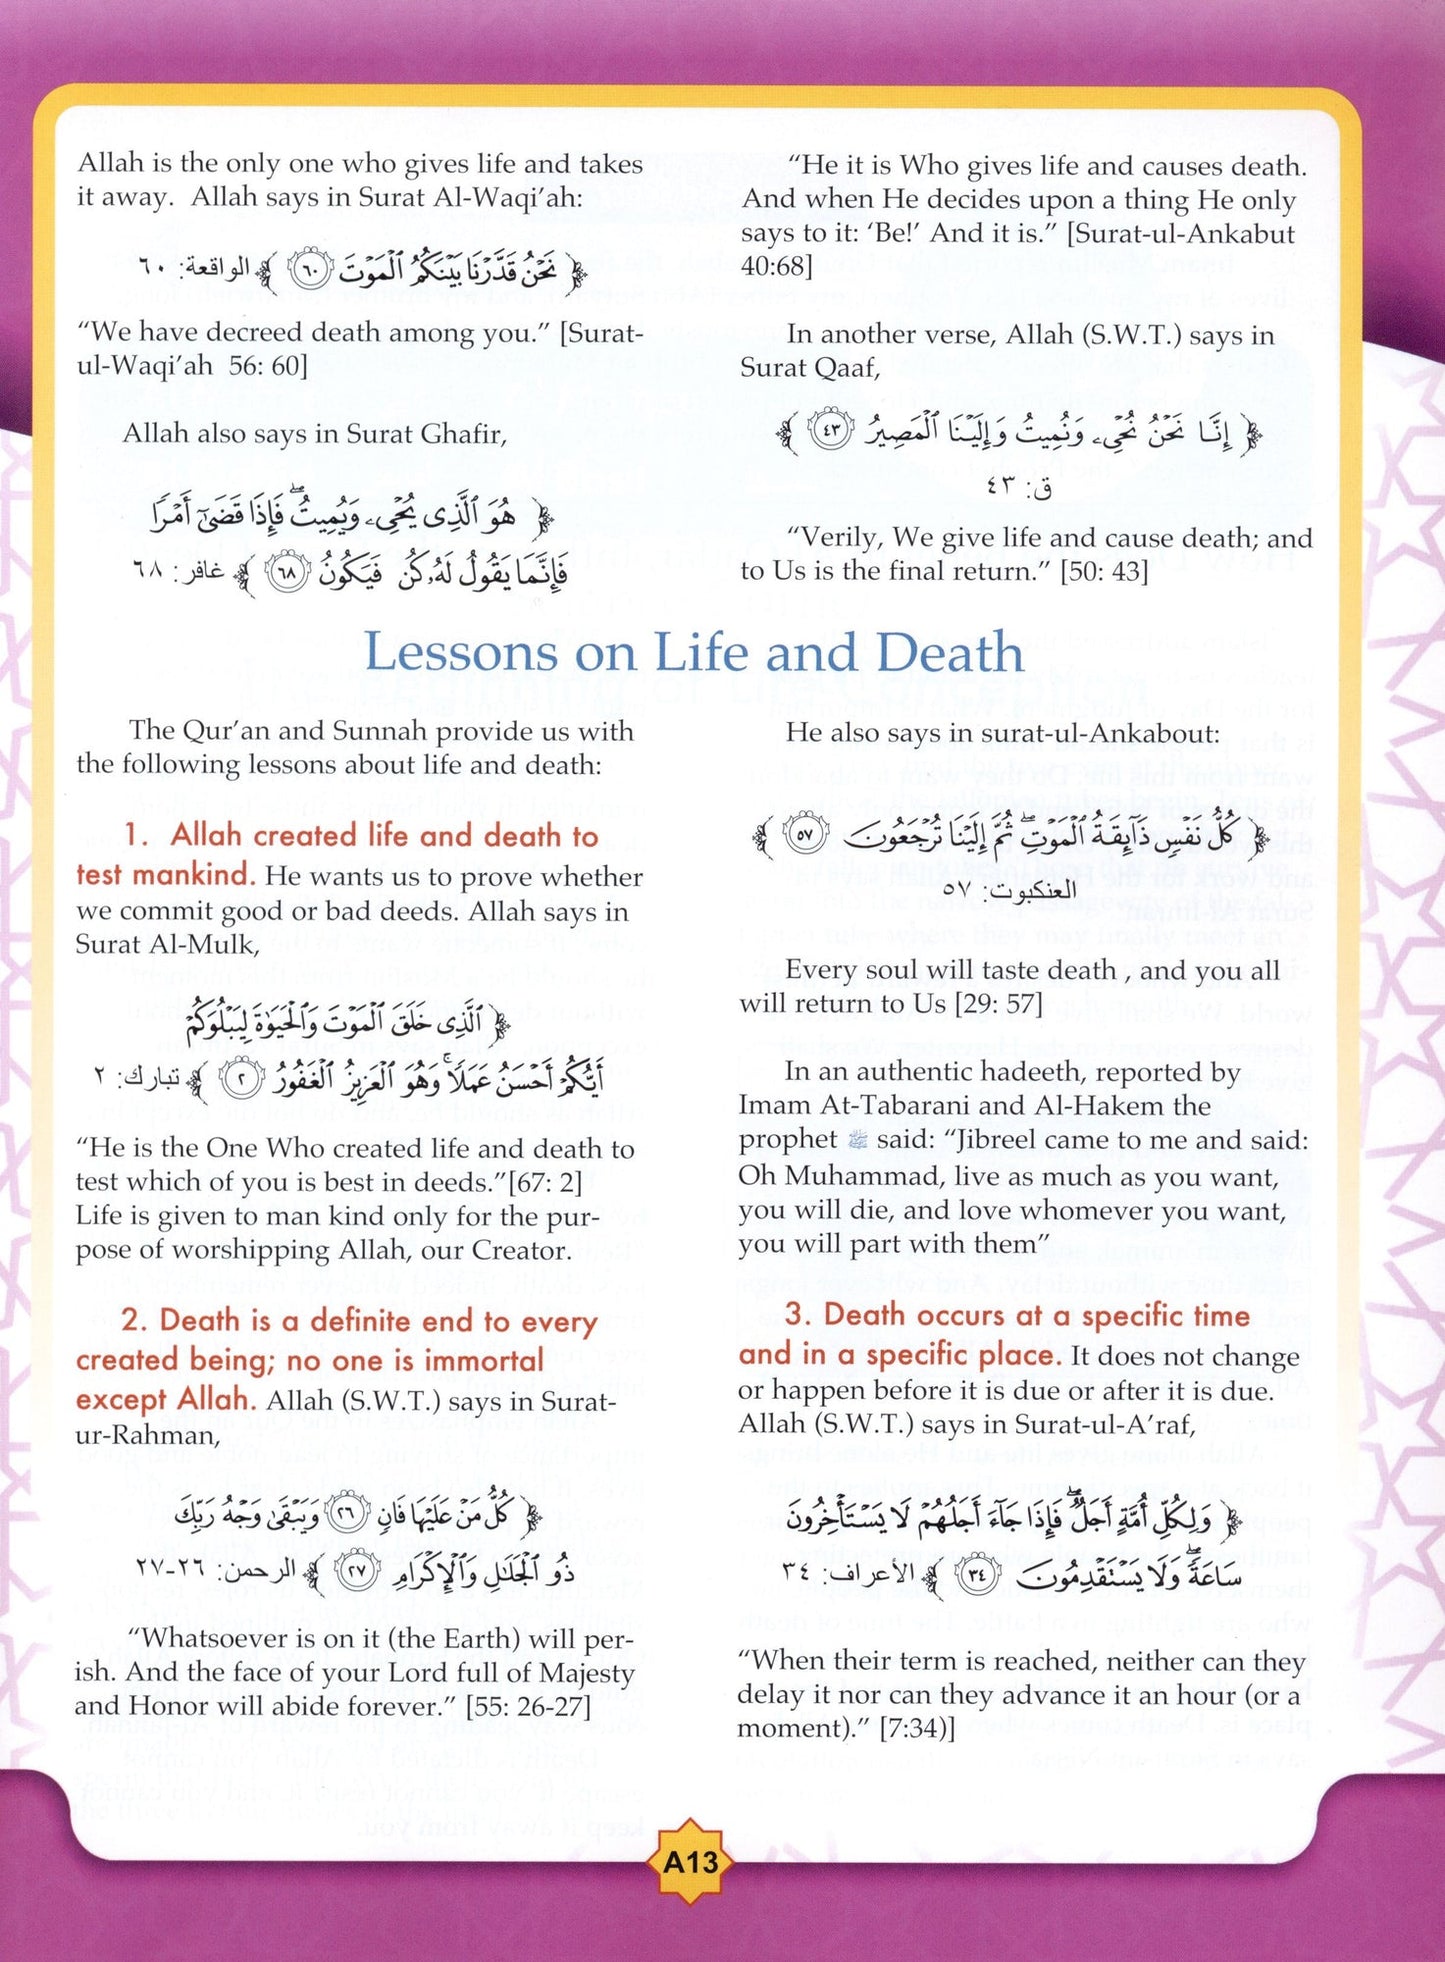 Allah is the only one who gives life and takes
it away.  Allah says in Surat Al-Waqi’ah:
﴿ نَحْنُ قَدَّرْنَا بَيْنَكُمُ ٱلْمَوْتَ ٦٠ ﴾ الواقعة: ٦٠
“We have decreed death among you.” [Surat-
ul-Waqi’ah  56: 60]
Allah also says in Surat Ghafir,
﴿ هُوَ ٱلَّذِى يُحْىِۦ وَيُمِيتُ ۖ فَإِذَا قَضَىٰٓ أَمْرًا
فَإِنَّمَا يَقُولُ لَهُۥ كُن فَيَكُونُ ٦٨ ﴾ غافر: ٦٨
“He it is Who gives life and causes death.
And when He decides upon a thing He only
says to it: ‘Be!’ And it is.” [Surat-ul-Ankabut
40:68]
In another verse, Allah (S.W.T.) says in
Surat Qaaf,
﴿ إِنَّا نَحْنُ نُحْىِۦ وَنُمِيتُ وَإِلَيْنَا ٱلْمَصِيرُ ٤٣ ﴾
ق: ٤٣
“Verily, We give life and cause death; and
to Us is the final return.” [50: 43]
Lessons on Life and Death
The Qur’an and Sunnah provide us with
the following lessons about life and death:
1.  Allah created life and death to
test mankind. He wants us to prove whether
we commit good or bad deeds. Allah says in
Surat Al-Mulk,
﴿ ٱلَّذِى خَلَقَ ٱلْمَوْتَ وَٱلْحَيَوٰةَ لِيَبْلُوَكُمْ
أَيُّكُمْ أَحْسَنُ عَمَلًا ۚ وَهُوَ ٱلْعَزِيزُ ٱلْغَفُورُ ٢ ﴾ تبارك: ٢
“He is the One Who created life and death to
test which of you is best in deeds.”[67: 2]
Life is given to man kind only for the pur-
pose of worshipping Allah, our Creator.
2. Death is a definite end to every
created being; no one is immortal
except Allah. Allah (S.W.T.) says in Surat-
ur-Rahman,
﴿ كُلُّ مَنْ عَلَيْهَا فَانٍ ٢٦ وَيَبْقَىٰ وَجْهُ رَبِّكَ
ذُو ٱلْجَلَٰلِ وَٱلْإِكْرَامِ ٢٧ ﴾ الرحمن: ٢٦-٢٧
“Whatsoever is on it (the Earth) will per-
ish. And the face of your Lord full of Majesty
and Honor will abide forever.” [55: 26-27]
He also says in surat-ul-Ankabout:
﴿ كُلُّ نَفْسٍ ذَآئِقَةُ ٱلْمَوْتِ ۖ ثُمَّ إِلَيْنَا تُرْجَعُونَ ٥٧ ﴾
العنكبوت: ٥٧
Every soul will taste death , and you all
will return to Us [29: 57]
In an authentic hadeeth, reported by
Imam At-Tabarani and Al-Hakem the
prophet ﷺ said: “Jibreel came to me and said:
Oh Muhammad, live as much as you want,
you will die, and love whomever you want,
you will part with them”
3. Death occurs at a specific time
and in a specific place. It does not change
or happen before it is due or after it is due.
Allah (S.W.T.) says in Surat-ul-A’raf,
﴿ وَلِكُلِّ أُمَّةٍ أَجَلٌ ۖ فَإِذَا جَآءَ أَجَلُهُمْ لَا يَسْتَأْخِرُونَ
سَاعَةً ۖ وَلَا يَسْتَقْدِمُونَ ٣٤ ﴾ الأعراف: ٣٤
“When their term is reached, neither can they
delay it nor can they advance it an hour (or a
moment).” [7:34)]
A13